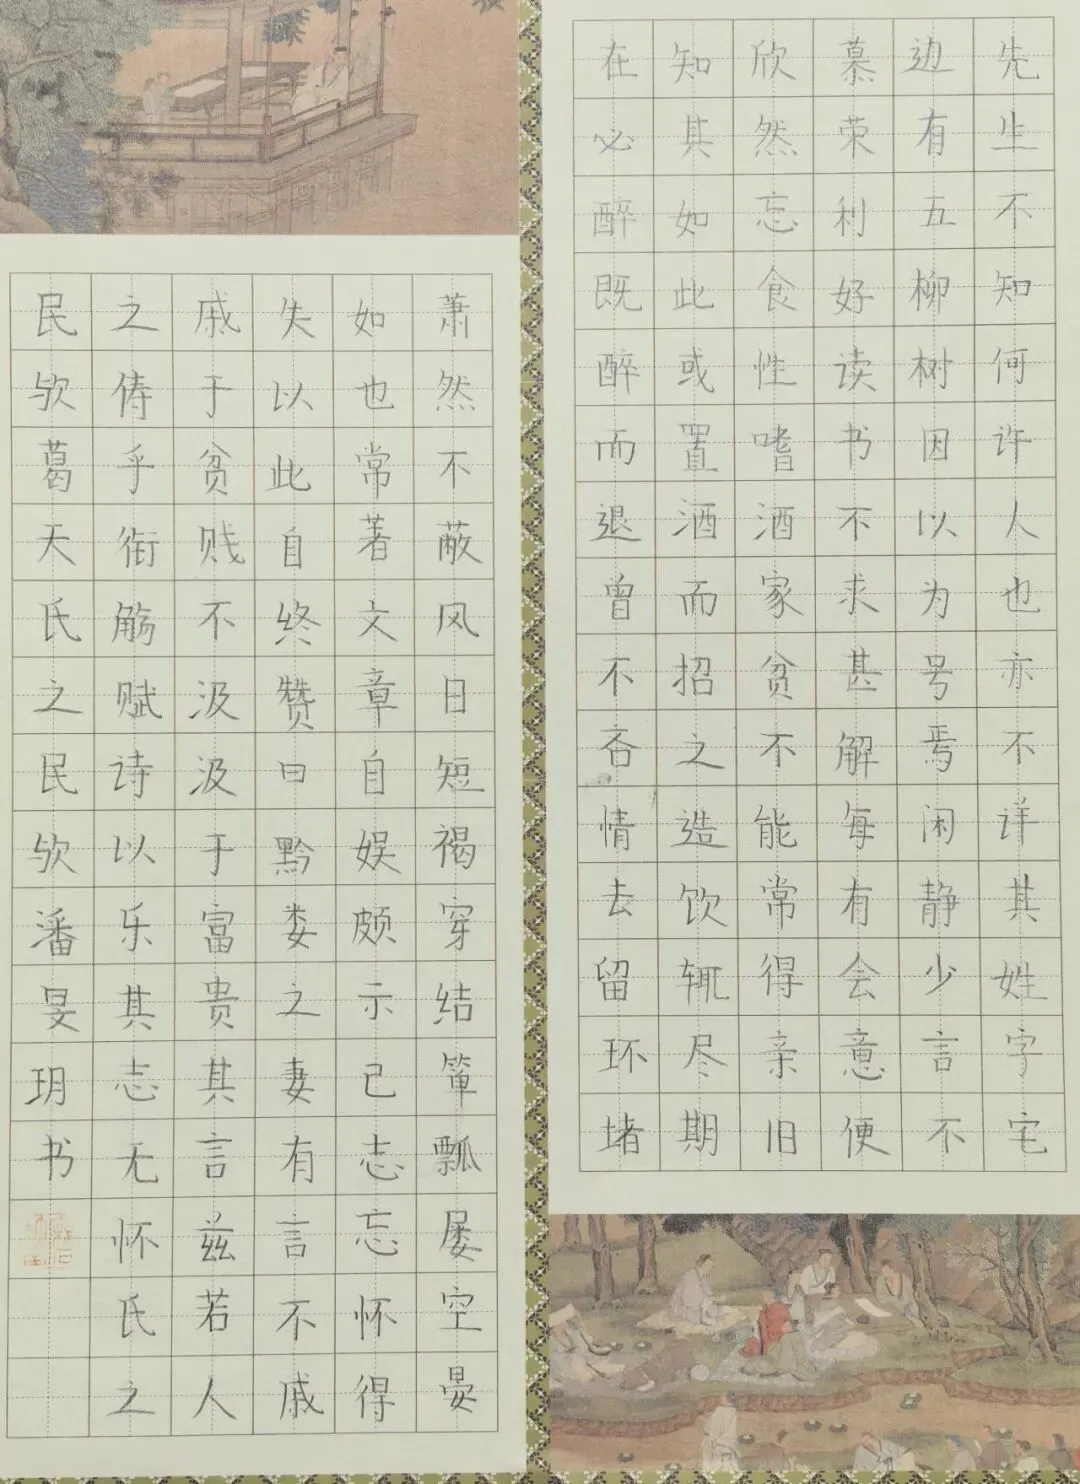 先生不知何许人也亦不详其姓字宅
边有五柳树因以为号焉闲静少言不
慕荣利好读书不求甚解每有会意便
欣然忘食性嗜酒家贫不能常得亲旧
知其如此或置酒而招之造饮辄尽期
在必醉既醉而退曾不吝情去留环堵
萧然不蔽风日短褐穿结箪瓢屡空晏
如也常著文章自娱颇示己志忘怀得
失以此自终赞曰黔娄之妻有言不戚
戚于贫贱不汲汲于富贵其言兹若人
之俦乎衔觞赋诗以乐其志无怀氏之
民欤葛天氏之民欤潘旻玥书